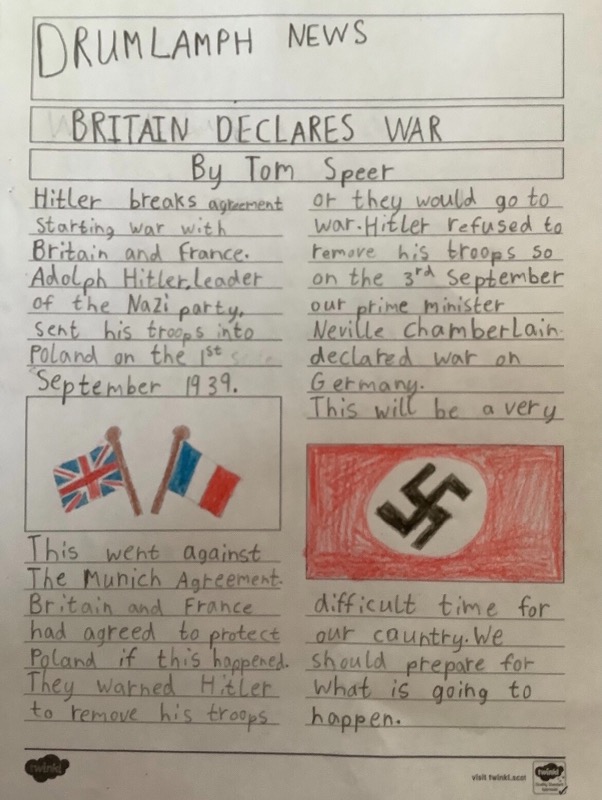 DRUMLAMPH NEWS
BRITAIN DECLARES WAR
By Tom Speer
Hitler breaks agreement
starting war with
Britain and France.
Adolph Hitler, leader
of the Nazi party,
sent his troops into
Poland on the 1st
September 1939.
This went against
The Munich Agreement.
Britain and France
had agreed to protect
Poland if this happened.
They warned Hitler
to remove his troops
or they would go to
war. Hitler refused to
remove his troops so
on the 3rd September
our prime minister
Neville Chamberlain
declared war on
Germany.
This will be a very
difficult time for
our cauntry. We
should prepare for
what is going to
happen.
twinkl
visit twinkl.scot
twinkl